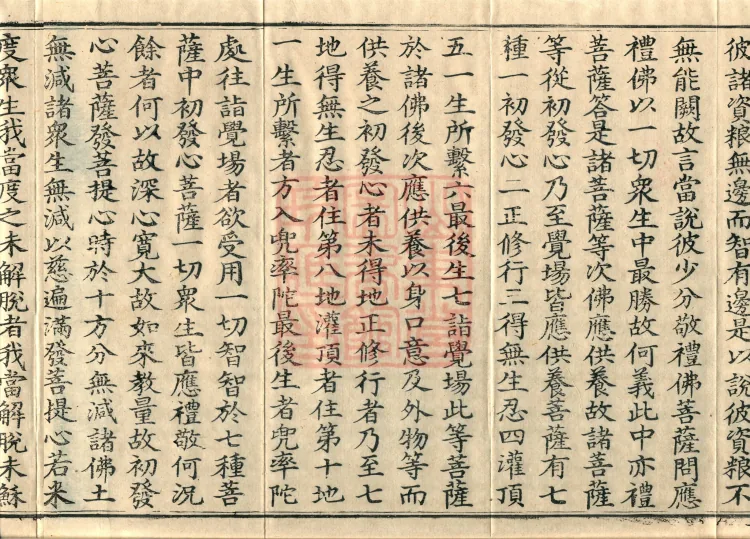 彼諸資粮無邊而智有邊是以說彼資粮不
無能闕故言當說彼少分敬禮佛菩薩問應
禮佛以一切衆生中最勝故何義此中亦禮
菩薩答是諸菩薩等次佛應供養故諸菩薩
等從初發心乃至覺場皆應供養菩薩有七
種一初發心二正修行三得無生忍四灌頂
五一生所繫六最後生七詣覺場此等菩薩
於諸佛後次應供養以身口意及外物等而
供養之初發心者未得地正修行者乃至七
地得無生忍者住第八地灌頂者住第十地
一生所繫者方入兜率陀最後生者兜率陀
處往詣覺場者欲受用一切智智於七種菩
薩中初發心菩薩一切衆生皆應禮敬何況
餘者何以故深心寬大故如來教量故初發
心菩薩發菩提心時於十方分無減諸佛土
無減諸衆生無減以慈遍滿發菩提心若未
度衆生我當度之未解脫者我當解脫未穌